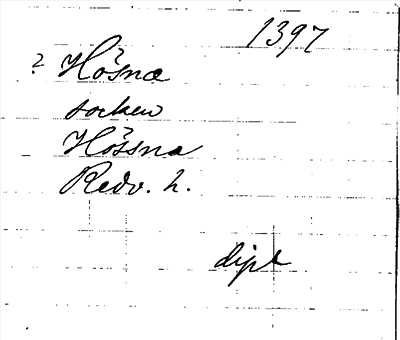 1397
? Hösna
socken
Hössna
Redv. h.
dipl